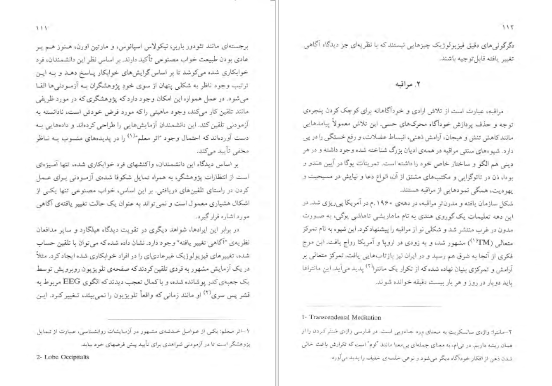 ۱۱۱
برجسته‌ای مانند تئودور باربر، نیکولاس اسپانوس، و مارتین اورن، هنوز هم بر
عادی بودن طبیعت خواب مصنوعی تأکید دارند. بر اساس نظر این دانشمندان، فرد
خوابکاری شده می‌کوشد تا بر اساس گرایش‌های خوابکار پاسخ دهد و به این
ترتیب وجود ناظر به شکلی پنهان از سوی خود پژوهشگران به آزمودنی‌ها القا
می‌شود. در عمل همواره این امکان وجود دارد که پژوهشگری که در مورد ظریفی
مانند تلقین کار می‌کند، وجود ماهیتی را که مورد فرض خودش است، نادانسته به
آزمودنی تلقین کند. این دانشمندان آزمایش‌هایی را طراحی کرده‌اند و داده‌هایی به
دست آورده‌اند که احتمال وجود "اثر معلم"(۱) را در پدیده‌های منسوب به ناظر
مخفی تأیید می‌کند.
بر اساس دیدگاه این دانشمندان، واکنشهای فرد خوابکاری شده، تنها آمیزه‌ای
است از انتظارات پژوهشگر، به همراه تمایل شکوفا شده‌ی آزمودنی برای عمل
کردن در راستای تلقین‌های دریافتی. بر این اساس، خواب مصنوعی تنها یکی از
اشکال هشیاری معمول است و نمی‌تواند به عنوان یک حالت تغییر یافته‌ی آگاهی
مورد اشاره قرار گیرد.
در برابر این ایرادها، شواهد دیگری در تقویت دیدگاه هیلگارد و سایر مدافعان
نظریه‌ی "آگاهی تغییر یافته" وجود دارد. نشان داده شده که می‌توان با تلقین حساب
شده، تغییرهای فیزیولوژیک غیرعادی‌ای را در افراد خوابکاری شده ایجاد کرد. مثلاً
در یک آزمایش مشهور به فردی تلقین کردند که صفحه‌ی تلویزیون روبرویش توسط
یک جعبه‌ی کدر پوشانده شده، و با کمال تعجب دیدند که الگوی EEG مربوط به
قشر پس سری(۲) او مانند زمانی که واقعاً تلویزیون را نمی‌بیند، تغییر کرد. این
۱-اثر معلم: یکی از عوامل خدشه‌ی مشهور در آزمایشات روانشناسی، عبارت از تمایل
پژوهشگر است تا در آزمودنی شواهدی برای تأیید پیش فرضهای خود بیابد.
2- Lobe Occipitalis
۱۱۲
دگرگونی‌های دقیق فیزیولوژیک چیزهایی نیستند که با نظریه‌ای جز دیدگاه آگاهی
تغییر یافته قابل توجیه باشند.
۲. مراقبه
مراقبه، عبارت است از تلاش ارادی و خودآگاهانه برای کوچک کردن پنجره‌ی
توجه و حذف پردازش خودآگاه محرک‌های حسی. این تلاش معمولاً پیامدهایی
مانند کاهش تنش و هیجان، آرامش ذهنی، انبساط عضلات، و رفع خستگی را در پی
دارد. شیوه‌های سنتی مراقبه در همه‌ی ادیان بزرگ شناخته شده وجود داشته و در هر
دینی هم الگو و ساختار خاص خود را داشته است. تمرینات یوگا در آیین هندو و
بودا، ذن در تائوگرایی و مکتب‌های مشتق از آن، انواع دعا و نیایش در مسیحیت و
یهودیت، همگی نمودهایی از مراقبه هستند.
شکل سازمان یافته و مدون‌تر مراقبه، در دهه‌ی ۱۹۶۰ .م در آمریکا پی‌ریزی شد. در
این دهه تعلیمات یک گوروی هندی به نام ماهاریشی ماهاشی یوگی، به صورت
مدون در غرب منتشر شد و شکلی نو از مراقبه را پیشنهاد کرد. این شیوه به نام تمرکز
متعالی (TM)(۱) مشهور شده و به زودی در اروپا و آمریکا رواج یافت. این موج
فکری از آنجا به شرق هم رسید و در ایران نیز بازتاب‌هایی یافت. تمرکز متعالی بر
آرامش و تمرکزی بنیان نهاده شده که از تکرار یک مانترا(۲) پدید می‌آید. این مانتراها
باید دوبار در روز و هر بار بیست دقیقه خوانده شوند.
1- Transcendental Meditation